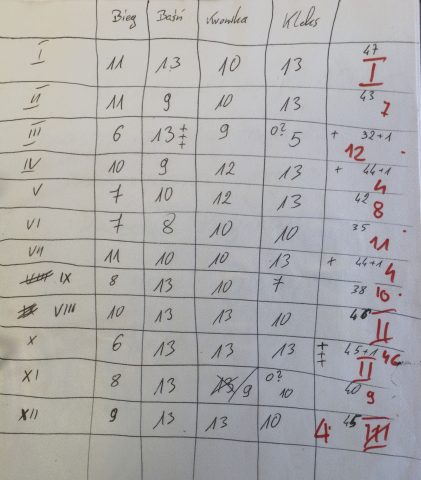 Bieg Baśń Kronika Kleks
I 11 13 10 13 47 I
II 11 9 10 13 43 7
III 6 13 +++ 9 0? 5 + 32+1 12
IV 10 9 12 13 + 44+1 4
V 7 10 12 13 42 8
VI 7 8 10 10 35 11
VII 11 10 10 13 + 44+1 4
IX 8 13 10 7 38 10
VIII 10 13 13 10 46 II
X 6 13 13 13 +++ 45+1 46 II
XI 8 13 13/9 0? 10 40 9
XII 9 13 13 10 4 45 III